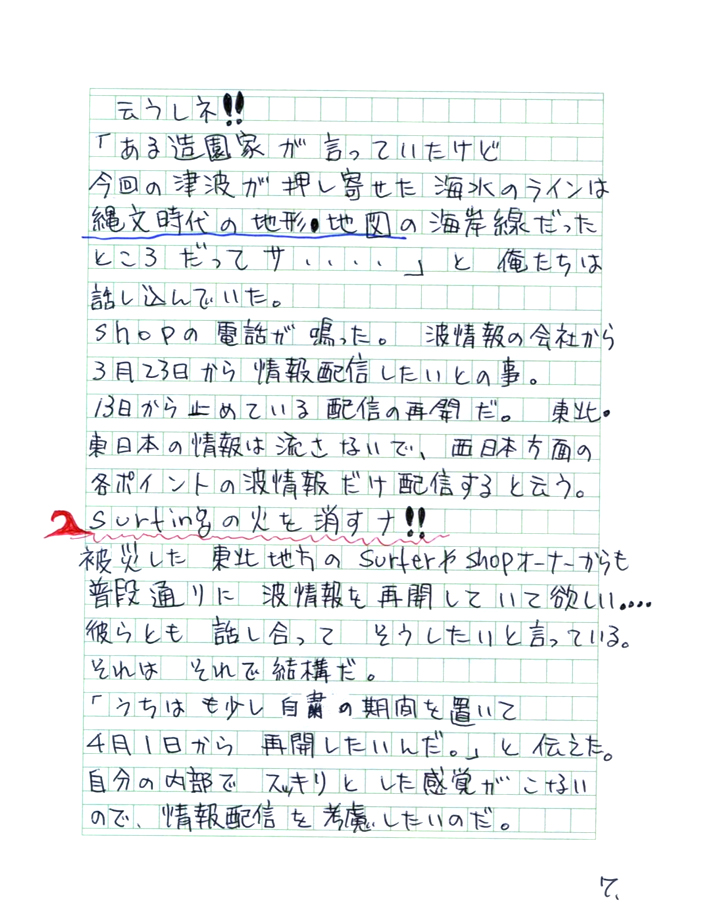 云うしネ!!
「ある造園家が言っていたけど
今回の津波が押し寄せた海水のラインは
縄文時代の地形・地図の海岸線だった
ところだってサ・・・・」と俺たちは
話し込んでいた。
shopの電話が鳴った。 波情報の会社から
3月23日から情報配信したいとの事。
13日から止めている配信の再開だ。 東北・
東日本の情報は流さないで、西日本方面の
各ポイントの波情報だけ配信すると云う。
surfingの火を消すナ!!
被災した東北地方のSurferやshopオーナーからも
普段通りに波情報を再開していて欲しい....
彼らとも話し合ってそうしたいと言っている。
それはそれで結構だ。
「うちはも少し自粛の期間を置いて
4月1日から再開したいんだ。」と伝えた。
自分の内部でスッキリとした感覚がこない
ので、情報配信を考慮したいのだ。
7.